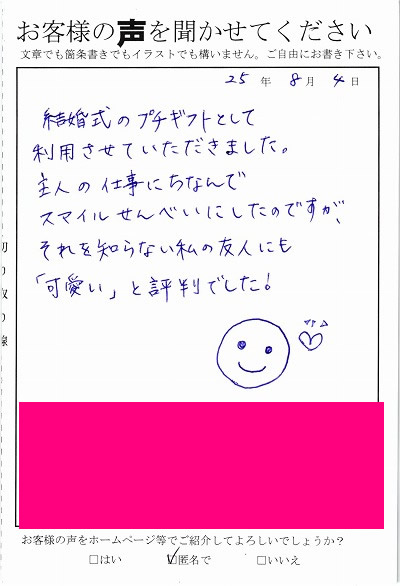 お客様の声を聞かせてください
文章でも箇条書きでもイラストでも構いません。ご自由にお書き下さい。
25 年 8 月 4 日
結婚式のプチギフトとして
利用させていただきました。
主人の仕事にちなんで
スマイルせんべいにしたのですが、
それを知らない私の友人にも
「可愛い」と評判でした!
切り取り線
お客様の声をホームページ等でご紹介してよろしいでしょうか?
□はい ☑匿名で □いいえ